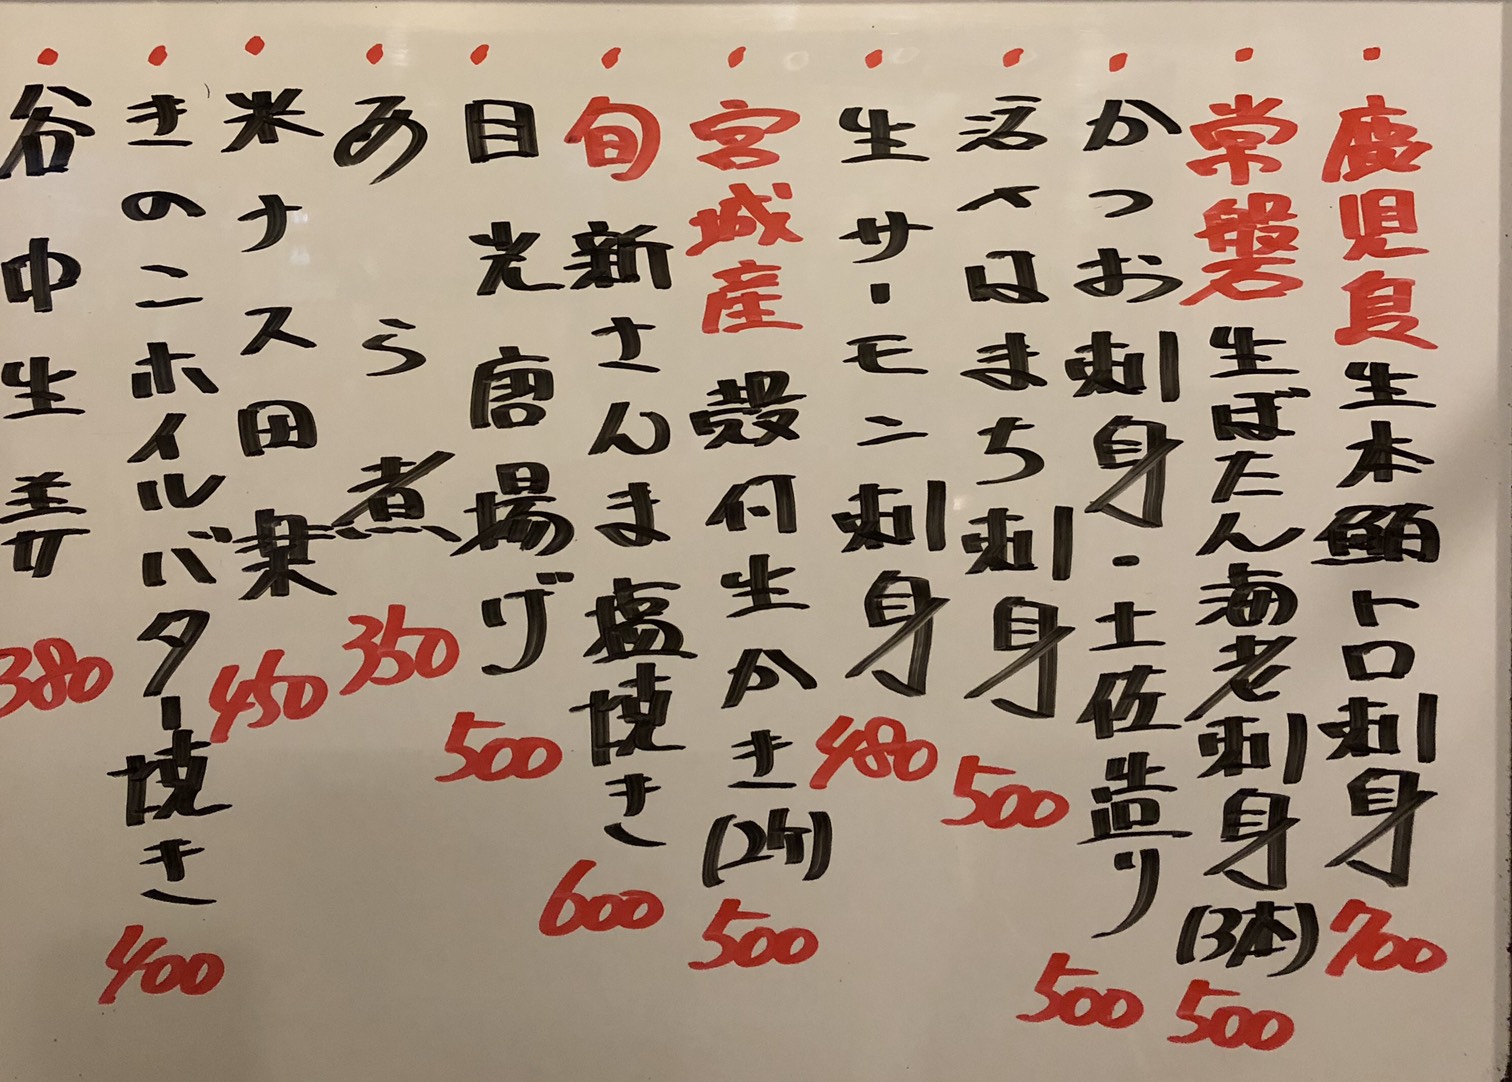 ・鹿児島生本鮪トロ刺身 700
・常磐生ぼたん海老刺身(3本) 500
・かつお刺身・土佐造り 500
・活〆はまち刺身 500
・生サーモン刺身 480
・宮城産殻付生かき(2ケ) 500
・旬新さんま塩焼き 600
・目光唐揚げ 500
・あら煮 350
・米ナス田楽 450
・きのこホイルバター焼き 400
・谷中生姜 380